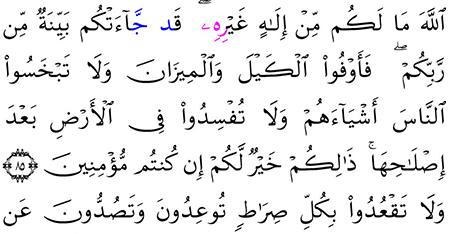 ٱللَّهَ مَا لَكُم مِّنْ إِلَٰهٍ غَيْرُهُۥ ۖ قَدْ جَآءَتْكُم بَيِّنَةٌ مِّن
رَّبِّكُمْ ۖ فَأَوْفُوا۟ ٱلْكَيْلَ وَٱلْمِيزَانَ وَلَا تَبْخَسُوا۟
ٱلنَّاسَ أَشْيَآءَهُمْ وَلَا تُفْسِدُوا۟ فِى ٱلْأَرْضِ بَعْدَ
إِصْلَٰحِهَا ۚ ذَٰلِكُمْ خَيْرٌ لَّكُمْ إِن كُنتُم مُّؤْمِنِينَ ۝٨٥
وَلَا تَقْعُدُوا۟ بِكُلِّ صِرَٰطٍ تُوعِدُونَ وَتَصُدُّونَ عَن